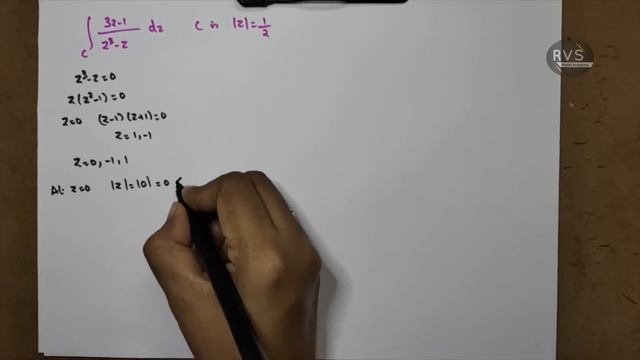 ∫_C (3z-1)/(z³-z) dz C is |z|=1/2
z³-z=0
z(z²-1)=0
z=0 (z-1)(z+1)=0
z=1,-1
z=0,-1,1
At z=0 |z|=|0|=0 <
RVS